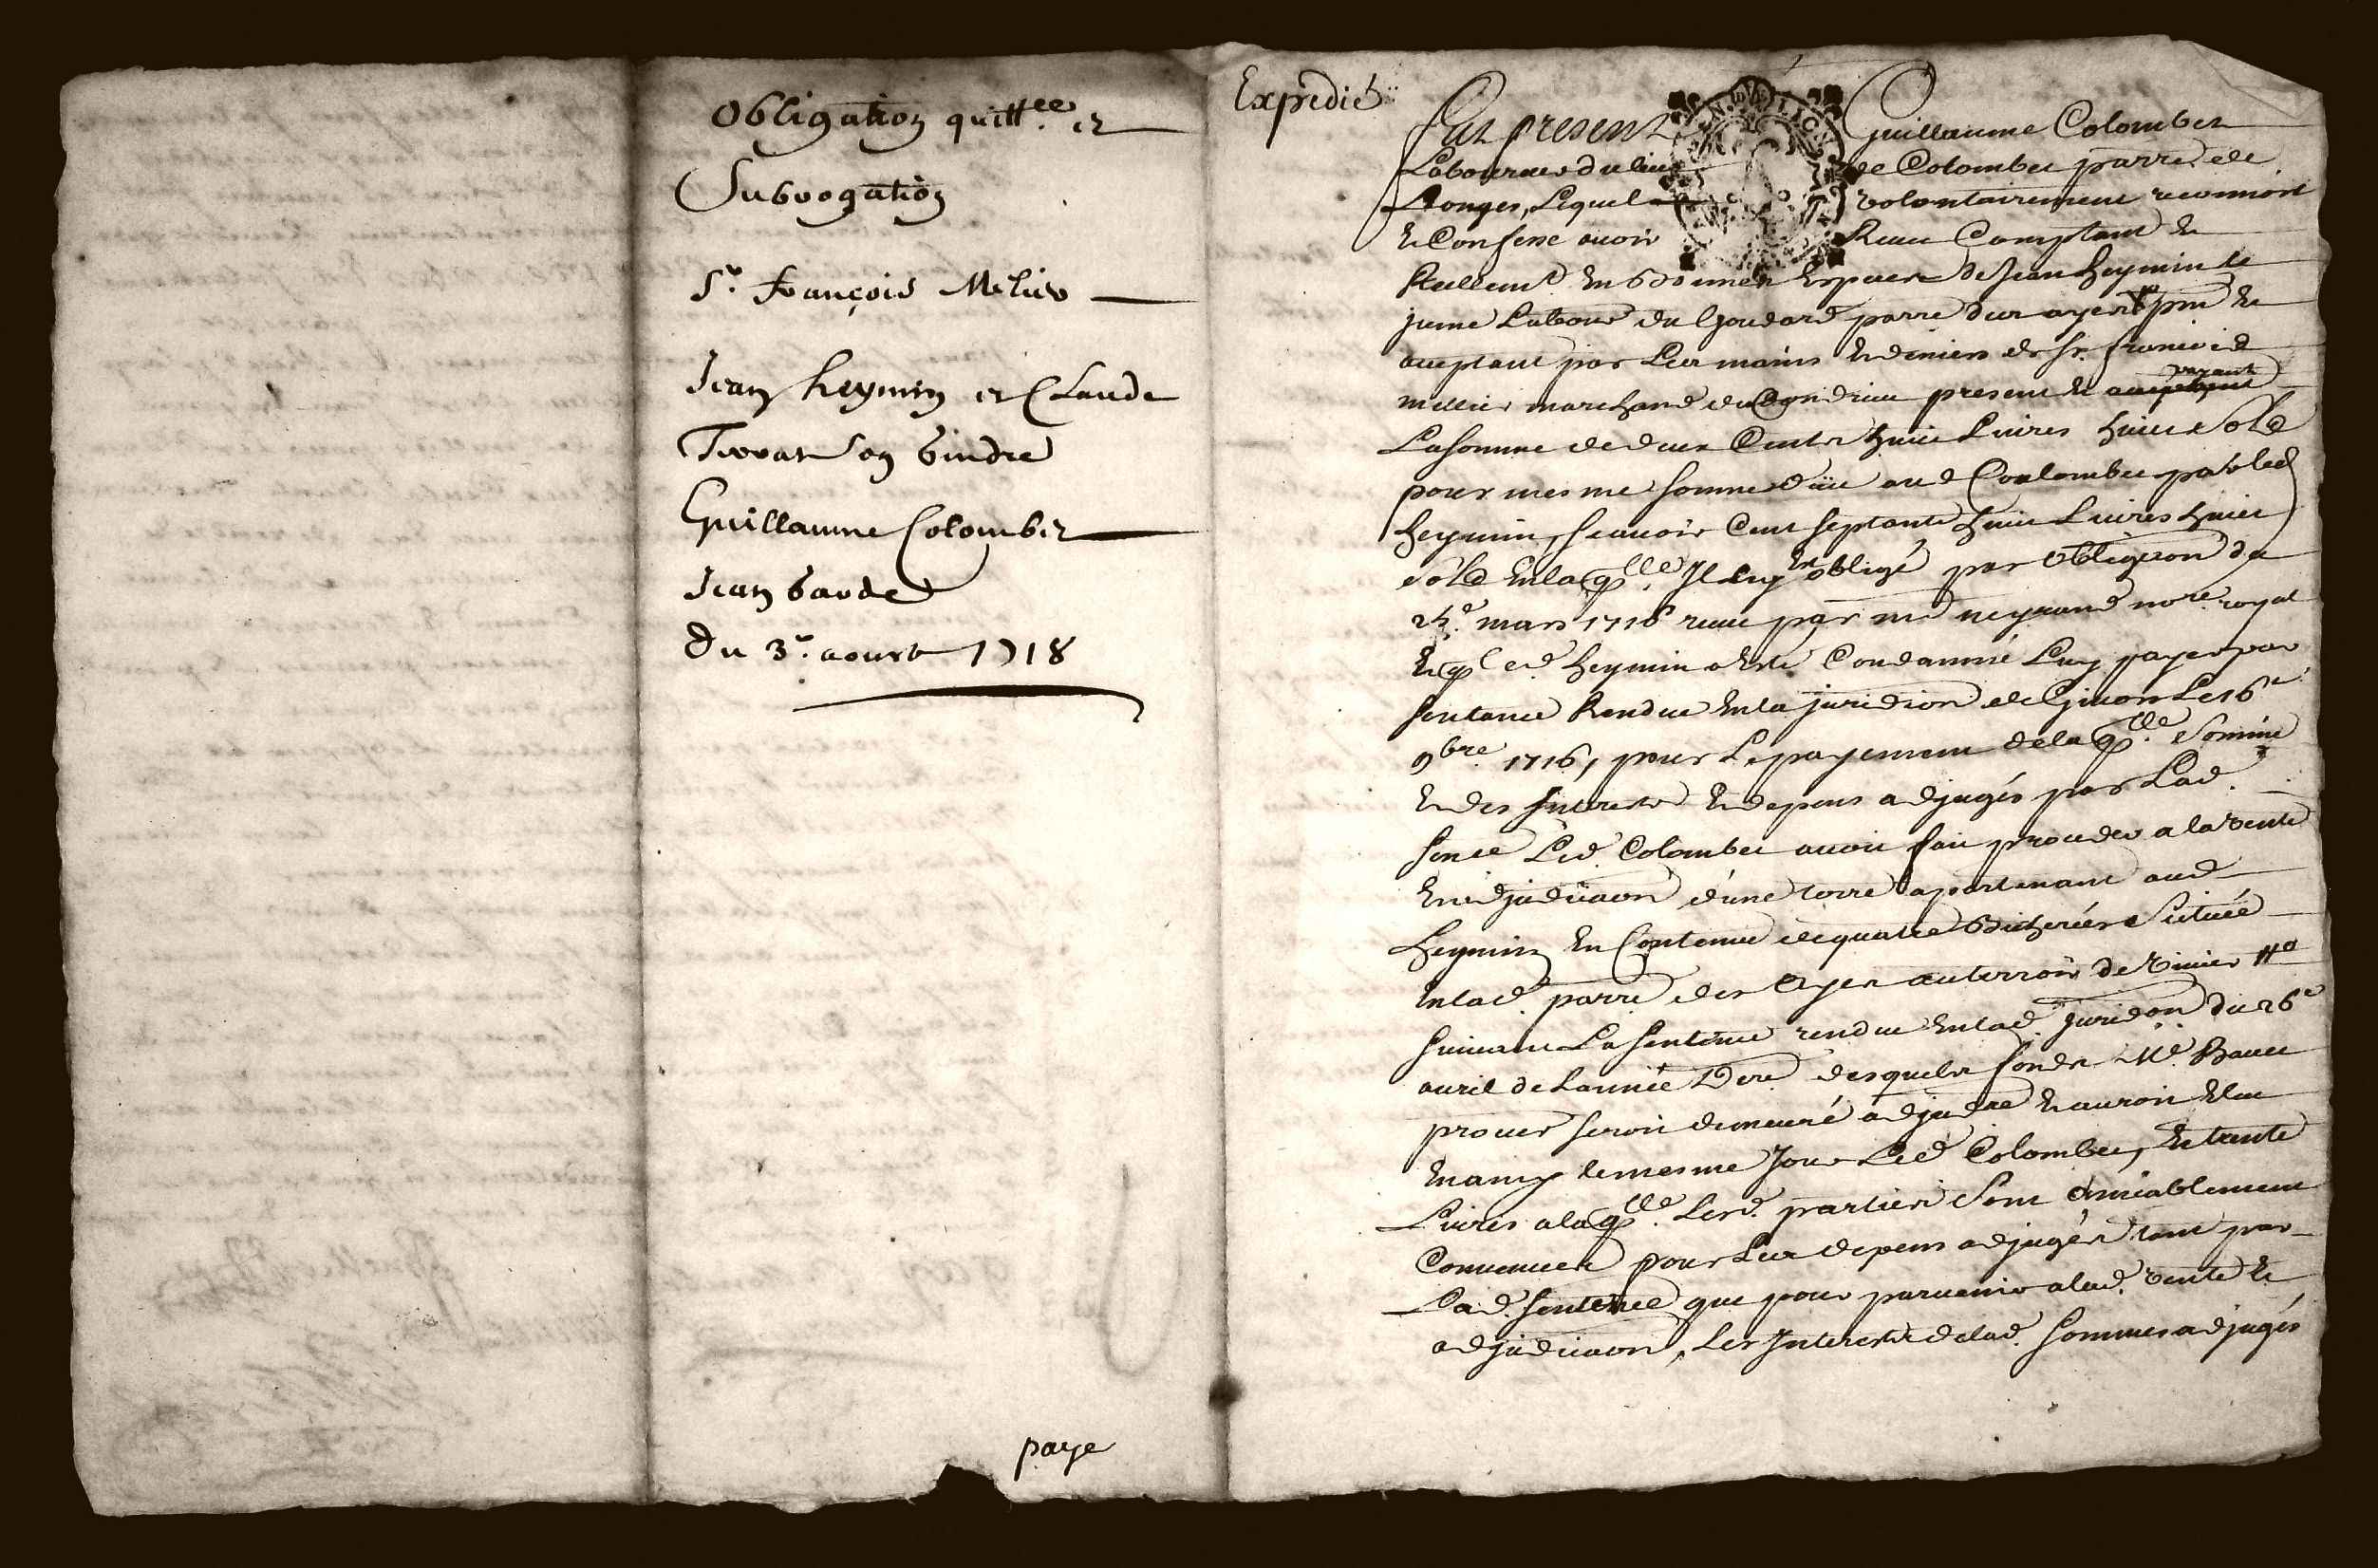 Obligation quitt.ce et
Subrogation
Sr. françois Melier
Jean heymin et Claude
son Gindre
Guillaume Colombet
Jean
Du 3e. aoust 1718
paye
Expedié
Fut present Guillaume Colombet
Laboureur du lieu de Colombet parre. de
Longes, Lequel volontairement reconnoit
et Confesse avoir Receu Comptant et
Reellemt. en especes de Jean heymin le
jeune Labour du parre des ayes pnt et
aceptant par Les mains et deniers de Sr. francois
mellier marchand de Condrieu present et vayant
La somme de deux Cents huit Livres huit sold
pour mesme somme düe aud Coulombet par led
heymin, scauoir Cent septante huit Livres huit
sold en laqlle. Il luy est obligé par obligaon du
mars 1716 receue par me neyrand nore. royal
et ql led. heymin a esté Condamné Luy payer par
sentance Rendue en la juridion de Givors Le 16e
9bre. 1716, pour Le payement de laqlle. Somme
et des Interests et depens adjugés par Lad.
sence Led. Colombet auoit fait proceder a la vente
et adjudicaon d'une terre apartenant aud
heymin en Contenue de quatre Bicherées Scituée
en lad. parre des ayes au terroir de
suiuant La sentence rendue en lad. juridon du 26e
auril de L'année Dere. desquels fonds Me.
procur seroit demeuré adjudre et auroit elu
en amy le mesme Jour Led. Colombet, et trente
Livres a laqlle. Lesd. parties sont amiablement
Conuenues pour Les depens adjugés tant par
Lad. sentence que pour paruenir a lad. vente et
adjudicaon, Les Interests delad. somme adjugés